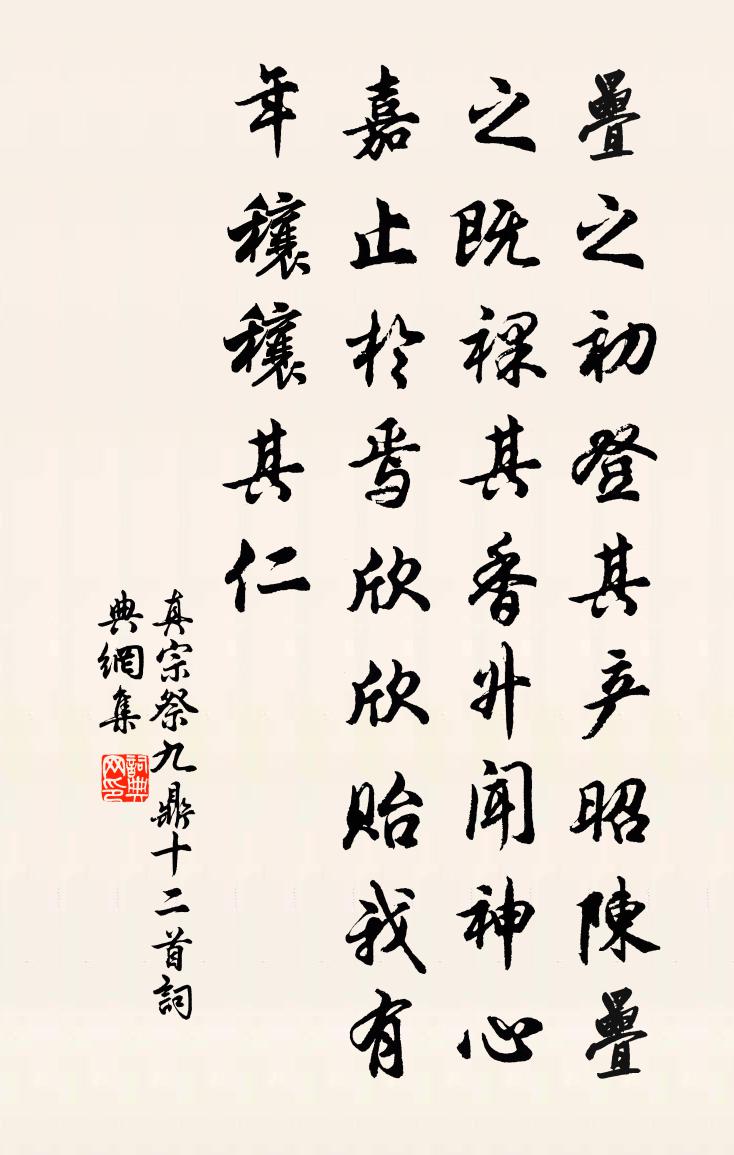 疊之初登其产昭陳疊
之既祼其香升闻神心
嘉止於焉欣欣貽我有
年穰穰其仁
真宗祭九鼎十二首詞
典網集
詞典
网印